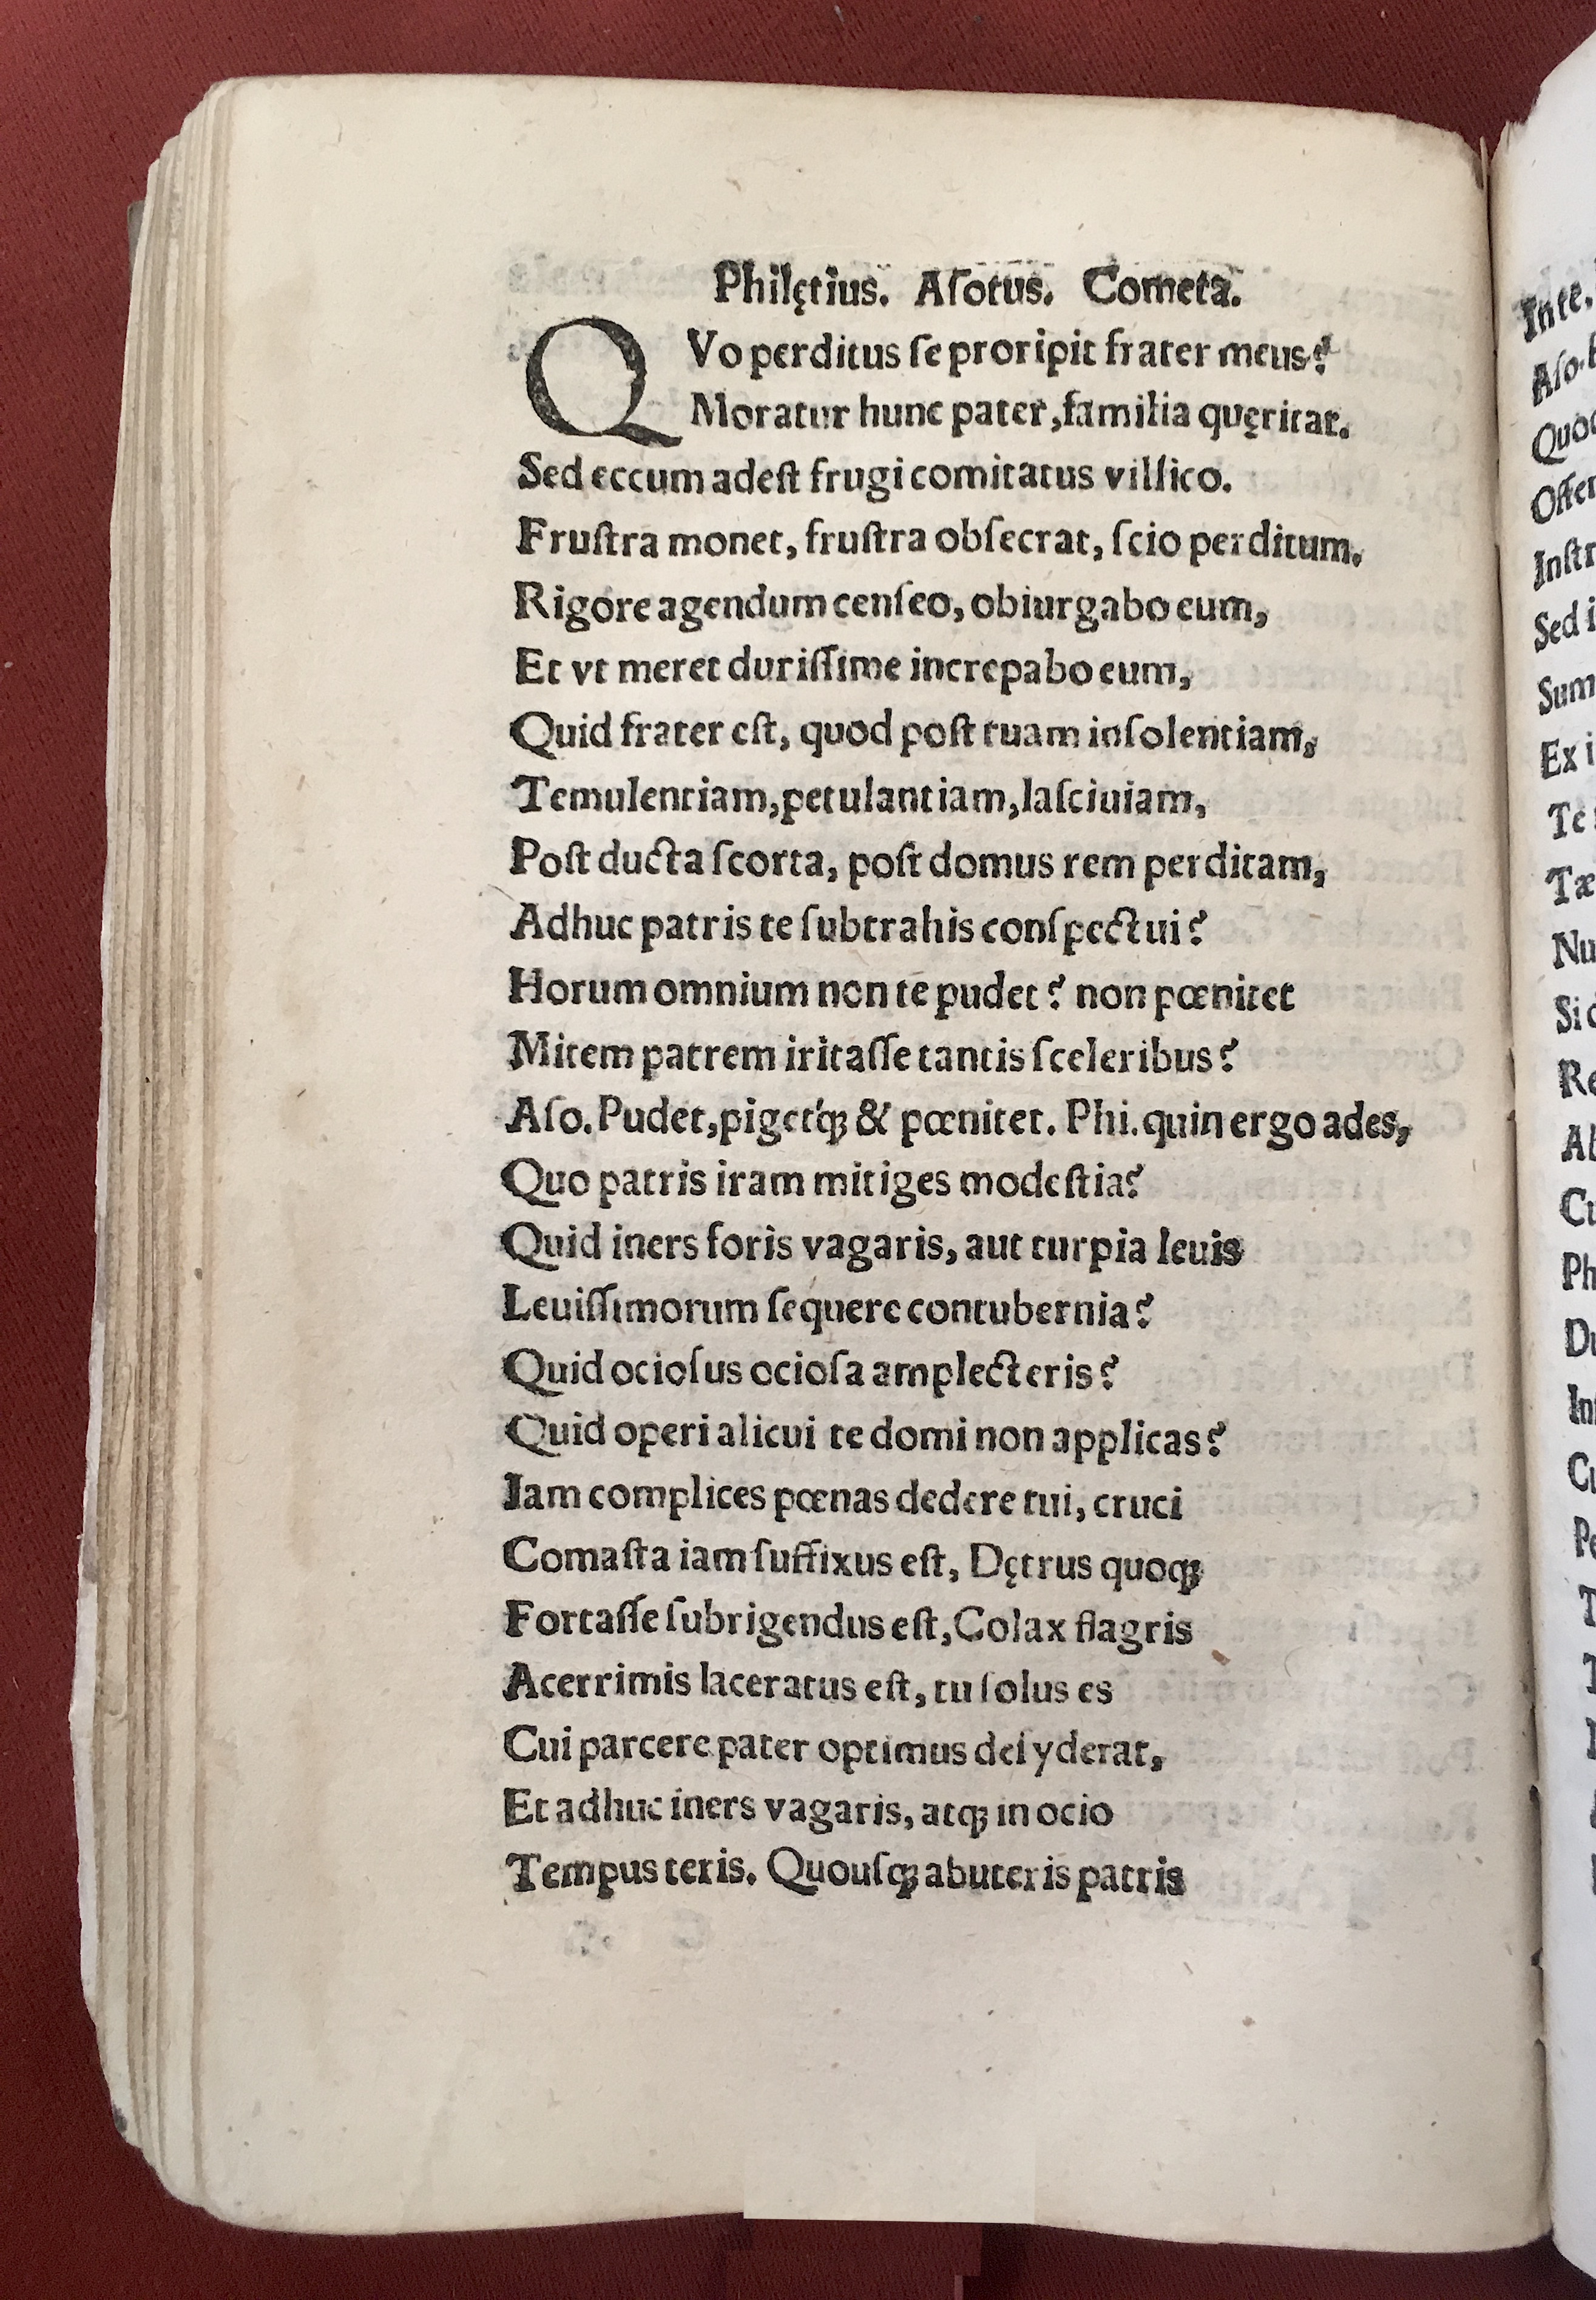 Philętius. Aſotus. Cometa.
QVo perditus ſe proripit frater meus?
Moratur hunc pater, familia quęritat.
Sed eccum adeſt frugi comitatus villico.
Fruſtra monet, fruſtra obſecrat, ſcio perditum.
Rigore agendum cenſeo, obiurgabo eum,
Et vt meret duriſſime increpabo eum,
Quid frater eſt, quod poſt tuam inſolentiam,
Temulentiam, petulantiam, laſciuiam,
Poſt ducta ſcorta, poſt domus rem perditam,
Adhuc patris te ſubtrahis conſpectui?
Horum omnium non te pudet? non pœnitet
Mitem patrem iritaſſe tantis ſceleribus?
Aſo. Pudet, pigetq́ꝫ & pœnitet. Phi. quin ergo ades,
Quo patris iram mitiges modeſtia?
Quid iners foris vagaris, aut turpia leuis
Leuiſſimorum ſequere contubernia?
Quid ocioſus ocioſa amplecteris?
Quid operi alicui te domi non applicas?
Iam complices pœnas dedere tui, cruci
Comaſta iam ſuffixus eſt, Dętrus quoqꝫ
Fortaſſe ſubrigendus eſt, Colax flagris
Acerrimis laceratus eſt, tu ſolus es
Cui parcere pater optimus deſyderat,
Et adhuc iners vagaris, atqꝫ in ocio
Tempus teris. Quouſqꝫ abuteris patris
Inte.
Aſo.
Sed i
Ex i
Te